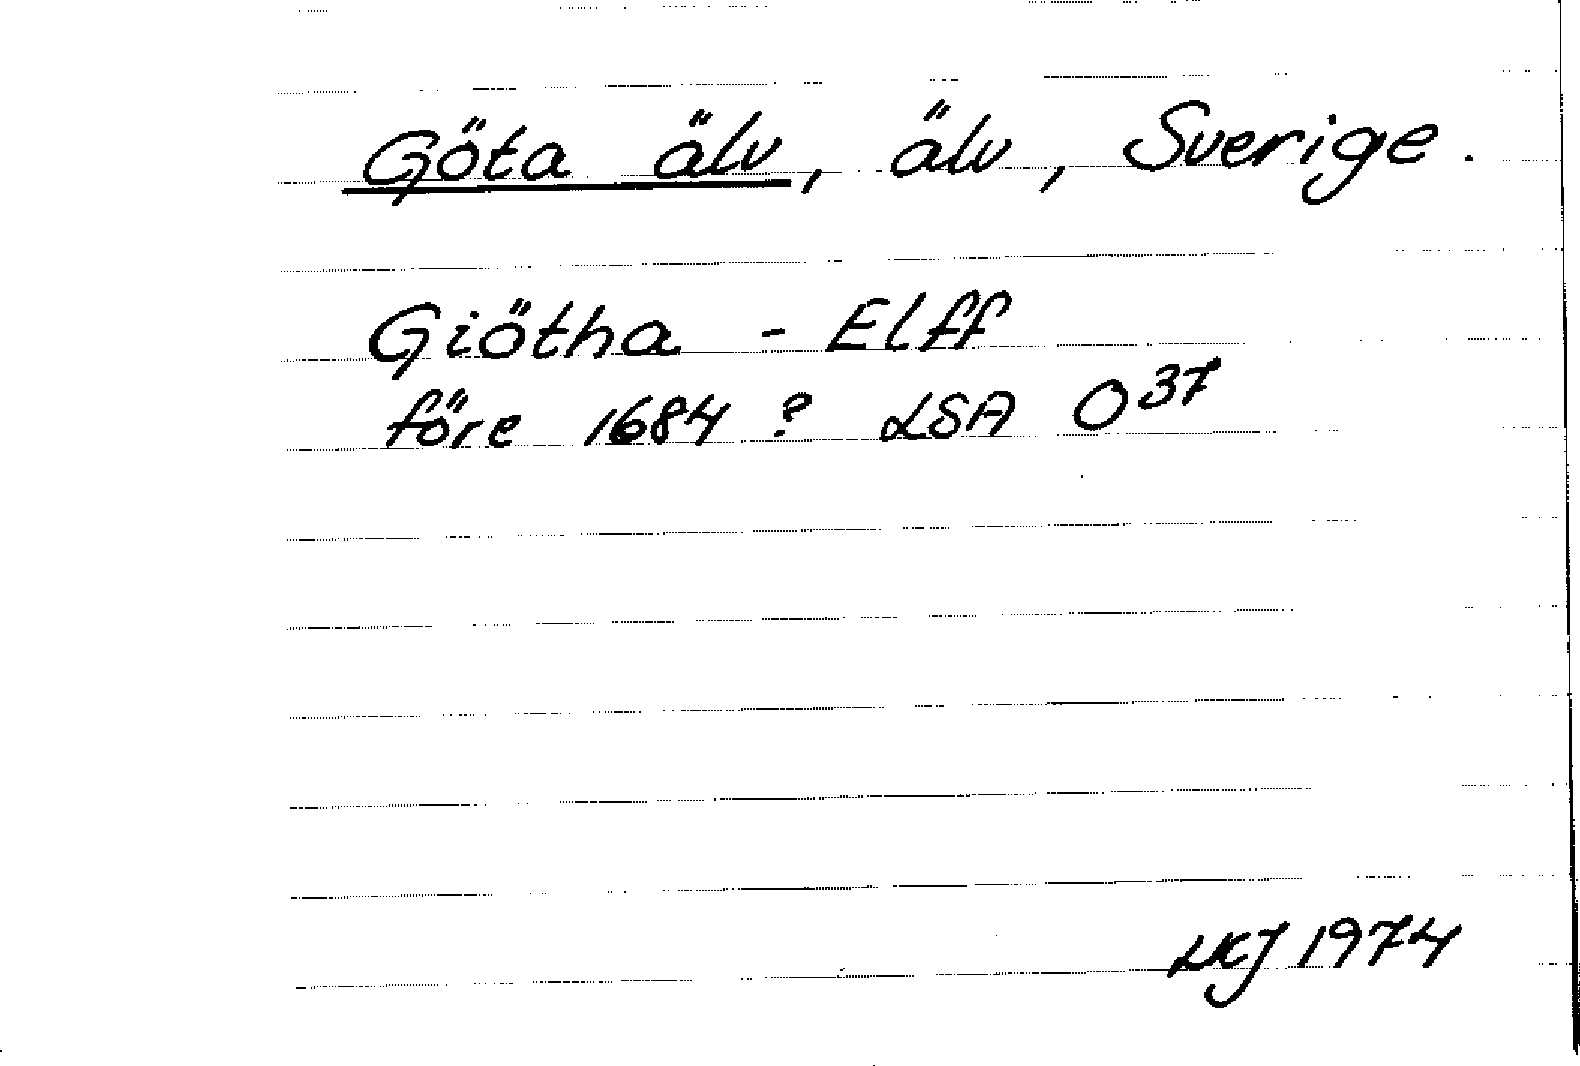 Göta älv, älv, Sverige.
Giötha - Elff
före 1684 ? LSA O³⁷
LKJ 1974